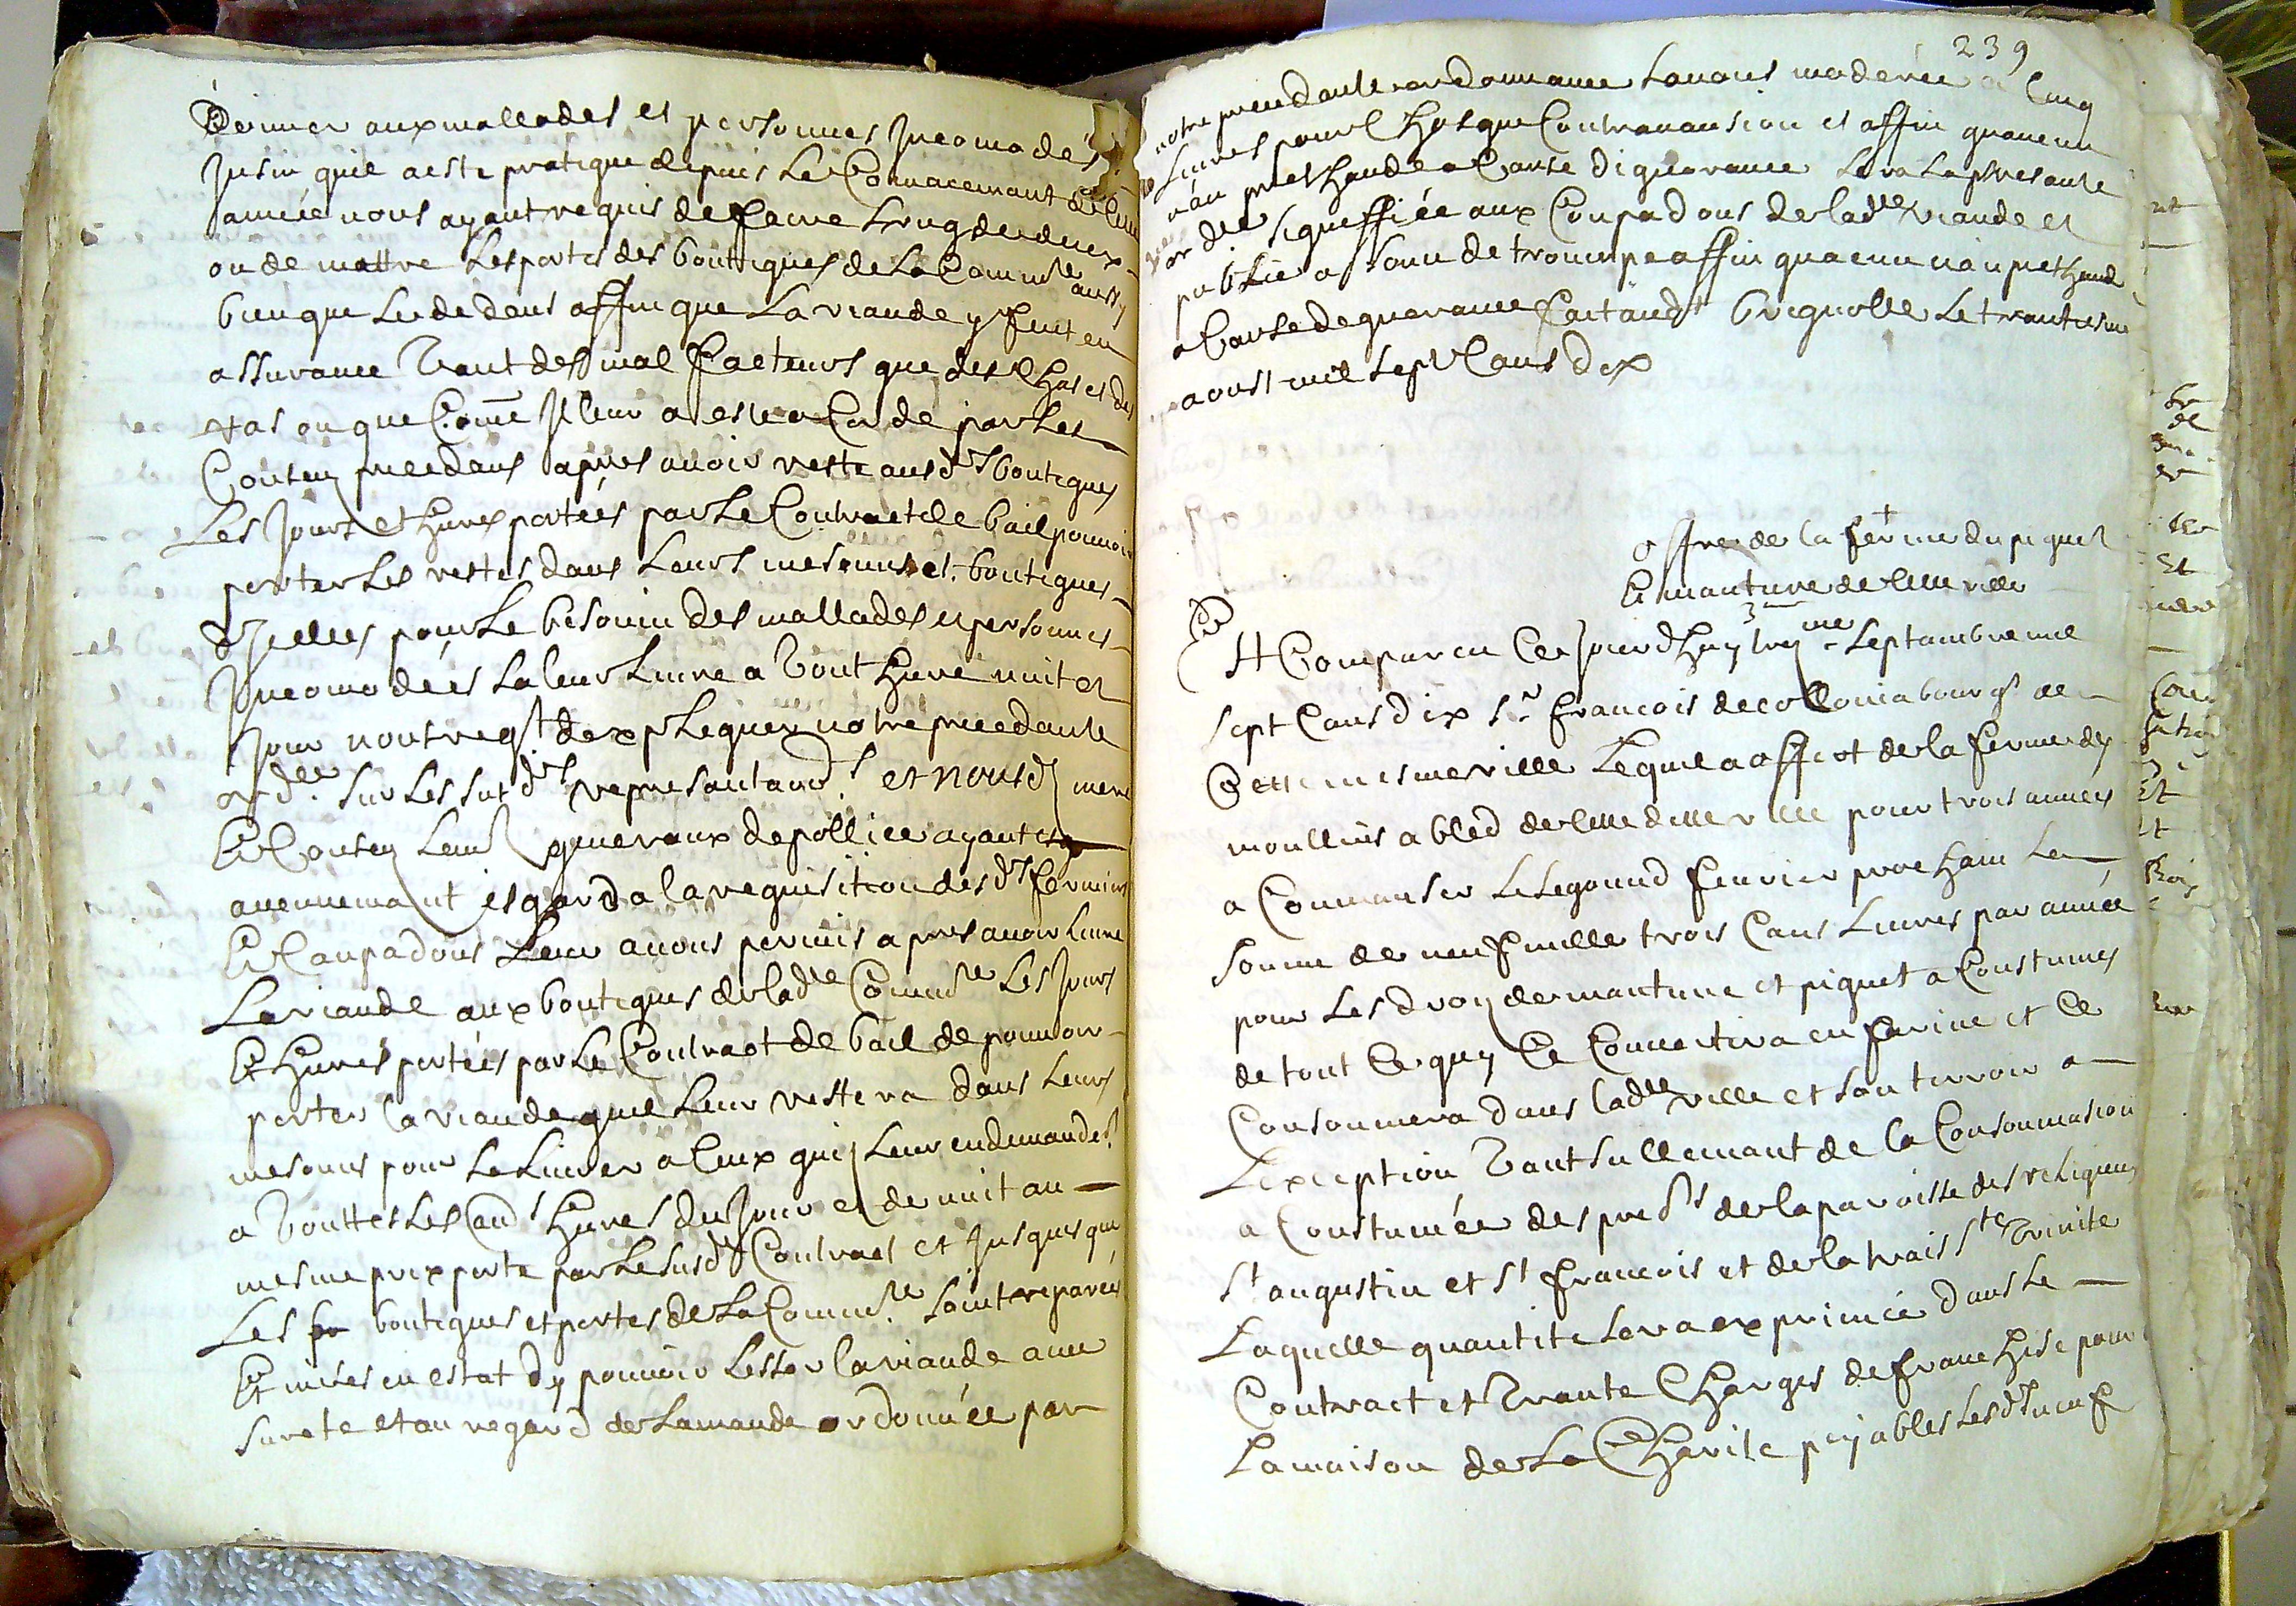 Deivver aux mallades et personnes Jncomodés
Jnsin quil a este pratique depuis Le Comacemant de lad
année nous ayant requis de faire
ou de mattre Les portes des boutiques de La Communte aussy
bien que Le dedans affin que La viande y fut en
assurance Tant des mal facteurs que des Chas et des
ras ou que Come Jl leur a este acorde par Les
Conseuz precedans apres avoir reste ausds boutiques
Les Jours et hures portées par Le Contract de bail pouvoir
porter Les restes dans Leurs mesouns et boutiques
dJcelles pour Le besouin des mallades et personnes
Jncomodées La leur Livre a Tout hure nuit et
Jour nont reqt dexpLequer notre precedante
ordce sur Les susds represantaons et nousd mere
Et Conseuz Lieut generaux de pollice ayant
aucunemant esgard a la requisition desds fermiers
Et Coupadous Leur avons permis apres avoir Livre
La viande aux boutiques de ladte Comunte Les Jours
Et hures portées par Le Contract de bail de pouvoir
porter la viande quil Leur restera dans Leurs
mesouns pour Le Livrer a Ceux quy Leur en demandet
a Touttes Les hures du Jour et de nuit au
mesme prix porte par Le susdt Contract et Jusques que
Les bo boutiques et portes de La Comunte soint reparées
Et mises en estat dy pouvoir Lesser la viande avec
surete et au regard de Lamande ordonnée par
239
notre precedante ordonnance Lavons moderée a Cinq
Livres pour Chasque Contravansion et affin quaucun
nan prethande a Cause digñorance sera La presante
ordce signeffiée aux Coupadous de ladte viande et
publiée a sonn de troumpe affin quaucun nan prethande
a Cause dignorance fait aud brignolle Le trantiesme
aoust mil sept Cans dix
offre de la ferme du piquet
Et mouture de cette ville
Et Comparu Cejourdhuy troy 3me septambre mil
sept Cans dix Sr francois de collonia bourgs de
Cette mesme ville Lequel a offert de la ferme des
moullins a bled de cette ditte ville pour trois années
a Coumanser Le segound feuvier prochain La
somme de neuf mille trois Cans Livres par année
pour Les droy de mouture et piquet a Coustumés
de tout Ce quy Ce Convertira en farine et Ce
Consoumera dans ladte ville et son terroir a
Lexception Tant sullemant de la Consoumasion
a Coustumée des prets de la paroisse des religieux
St augustin et St francois et de la trais Ste Trinite
Laquelle quantite sera exprimée dans Le
Contract et Trante Charges de franchise pour
La maison de La Charite peyables Lesds neuf